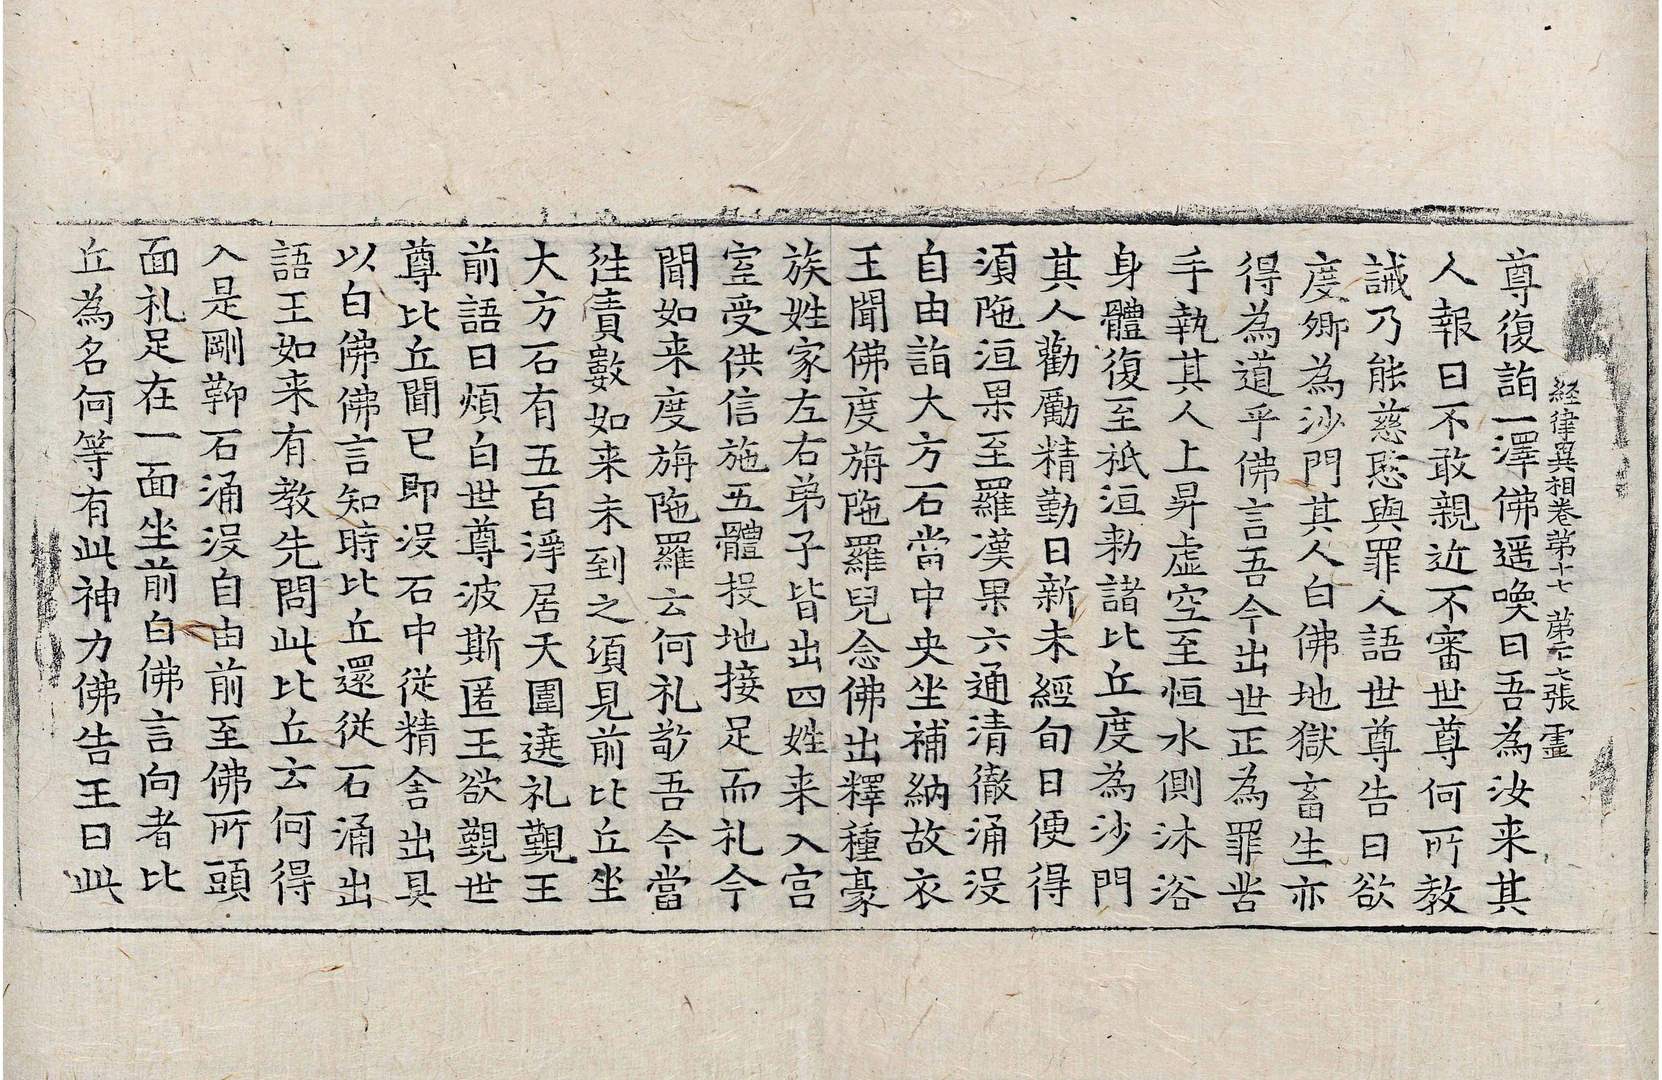 経律異相卷第十七 第十七張 霊
尊復詣一澤佛遥喚曰吾為汝来其
人報曰不敢親近不審世尊何所教
誡乃能慈愍與罪人語世尊告曰欲
度卿為沙門其人白佛地獄畜生亦
得為道乎佛言吾今出世正為罪苦
手執其人上昇虛空至恒水側沐浴
身體復至祇洹勑諸比丘度為沙門
其人勸勵精勤日新未經旬日便得
須陁洹果至羅漢果六通清徹涌没
自由詣大方石當中央坐補納故衣
王聞佛度旃陁羅兒念佛出釋種豪
族姓家左右弟子皆出四姓来入宫
室受供信施五體投地接足而礼今
聞如来度旃陁羅云何礼敬吾今當
徃責數如来未到之須見前比丘坐
大方石有五百淨居天圍遶礼覲王
前語曰煩白世尊波斯匿王欲覲世
尊比丘聞已即没石中從精舍出具
以白佛佛言知時比丘還從石涌出
語王如来有教先問此比丘云何得
入是剛鞕石涌没自由前至佛所頭
面礼足在一面坐前白佛言向者比
丘為名何等有此神力佛告王曰此